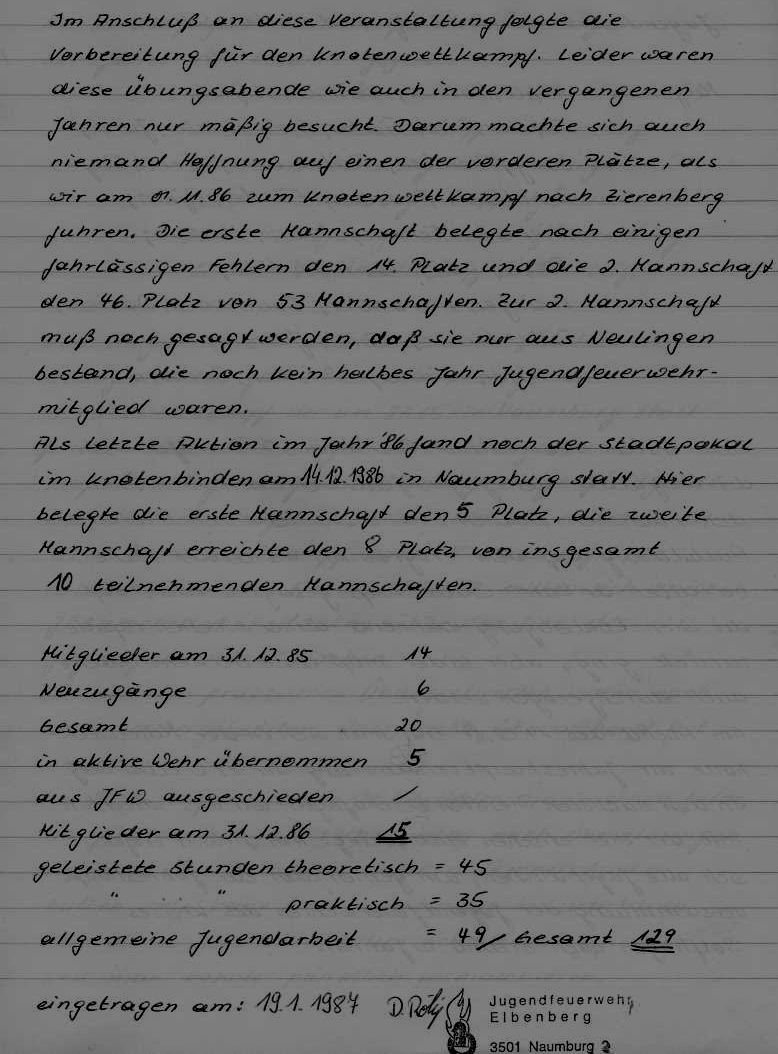 Im Anschluß an diese Veranstaltung folgte die
Vorbereitung für den Knotenwettkampf. Leider waren
diese Übungsabende wie auch in den vergangenen
Jahren nur mäßig besucht. Darum machte sich auch
niemand Hoffnung auf einen der vorderen Plätze, als
wir am 01.11.86 zum Knotenwettkampf nach Zierenberg
fuhren. Die erste Mannschaft belegte nach einigen
fahrlässigen Fehlern den 14. Platz und die 2. Mannschaft
den 46. Platz von 53 Mannschaften. Zur 2. Mannschaft
muß noch gesagt werden, daß sie nur aus Neulingen
bestand, die noch kein halbes Jahr Jugendfeuerwehr-
mitglied waren.
Als letzte Aktion im Jahr '86 fand noch der Stadtpokal
im Knotenbinden am 14.12.1986 in Naumburg statt. Hier
belegte die erste Mannschaft den 5 Platz, die zweite
Mannschaft erreichte den 8 Platz, von insgesamt
10 teilnehmenden Mannschaften.
Mitglieder am 31.12.85 14
Neuzugänge 6
Gesamt 20
in aktive Wehr übernommen 5
aus JFW ausgeschieden /
Mitglieder am 31.12.86 15
geleistete Stunden theoretisch = 45
" " praktisch = 35
allgemeine Jugendarbeit = 49 / Gesamt 129
eingetragen am: 19.1.1987 D.
Jugendfeuerwehr
Elbenberg
3501 Naumburg 2